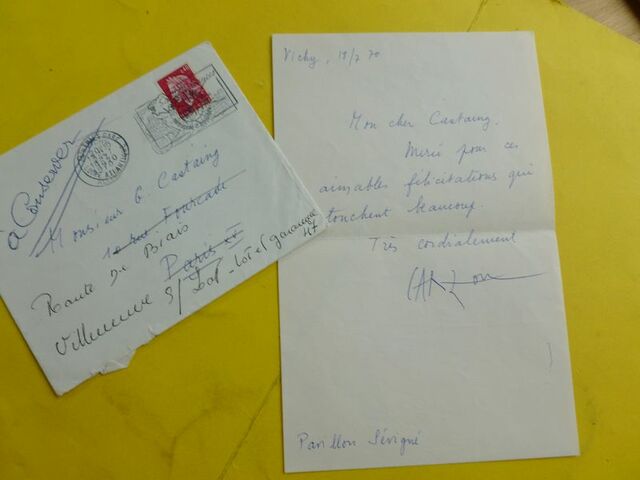 à Conserver
Monsieur G. Castaing
Fourcade
Paris
Route de Biais
Villeneuve S/ Lot - Lot et garonne
47
Vichy, 19/7 70
Mon cher Castaing.
Merci pour ces
aimables félicitations qui
touchent beaucoup.
Très cordialement
CARZou
Pavillon Sévigné